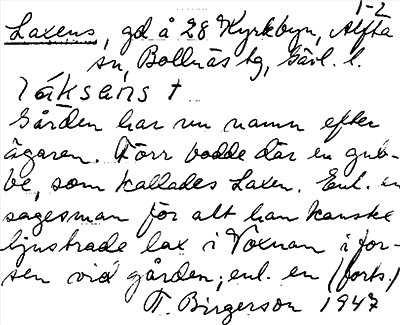 1-2
Laxens, gd å 28 Kyrkbyn, Alfta
sn, Bollnäs tg, Gävl. l.
láksèns +
Gården har nu namn efter
ägaren. Förr bodde där en gub-
be, som kallades Laxen. Enl. en
sagesman för att han kanske
ljustrade lax i Voxnan i for-
sen vid gården; enl. en (forts.)
T. Birgerson 1947